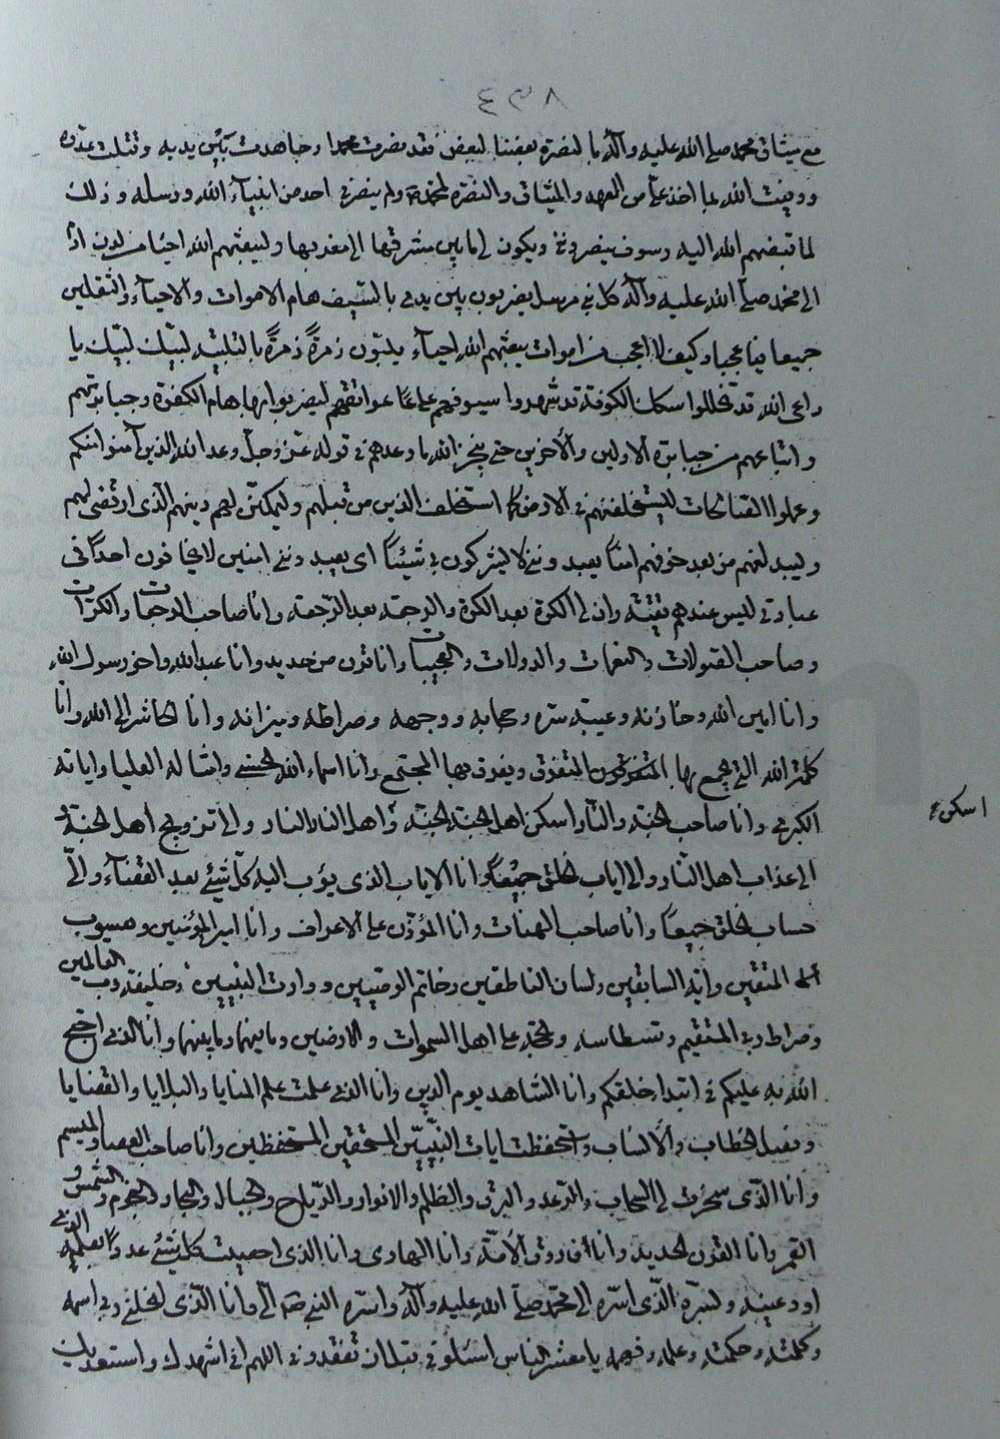 ٨٣٤
مع ميثاق محمد صلى الله عليه وآله بالنصرة بعضنا لبعض فقد نصرت محمدا وجاهدت بين يديه وقتلت عدوه
ووفيت الله بما اخذ على من العهد والميثاق والنصرة لمحمد ولم ينصرني احد من انبياء الله ورسله وذلك
لما قبضهم الله اليه وسوف ينصرونني ويكون لي ما بين مشرقها الى مغربها وليبعثهم الله احياء من لدن ادم
الى محمد صلى الله عليه وآله كل نبي مرسل يضربون بين يدي بالسيف هام الاموات والاحياء والثقلين
جميعا فيا عجبا وكيف لا اعجب من اموات يبعثهم الله احياء يلبون زمرة زمرة بالتلبية لبيك لبيك يا
داعي الله قد تخللوا سكك الكوفة قد شهروا سيوفهم على عواتقهم ليضربوا بها هام الكفرة وجبابرتهم
واتباعهم من جبابرة الاولين والآخرين حتى ينجز الله ما وعدهم في قوله عز وجل وعد الله الذين آمنوا منكم
وعملوا الصالحات ليستخلفنهم في الارض كما استخلف الذين من قبلهم وليمكنن لهم دينهم الذي ارتضى لهم
وليبدلنهم من بعد خوفهم امنا يعبدونني لا يشركون بي شيئا اي يعبدونني امنين لا يخافون احدا في
عبادتي ليس عندهم تقية وان لي الكرة بعد الكرة والرجعة بعد الرجعة وانا صاحب الرجعات والكرات
وصاحب الصولات والنقمات والدولات والعجيبات وانا قرن من حديد وانا عبد الله واخو رسول الله
وانا امين الله وخازنه وعيبة سره وحجابه ووجهه وصراطه وميزانه وانا الحاشر الى الله وانا
كلمة الله التي يجمع بها المتفرق ويفرق بها المجتمع وانا اسماء الله الحسنى وامثاله العليا واياته
الكبرى وانا صاحب الجنة والنار اسكن اهل الجنة الجنة واهل النار النار والي تزويج اهل الجنة و
الي عذاب اهل النار والي اياب الخلق جميعا وانا الاياب الذي يؤب اليه كل شيء بعد القضاء والي
حساب الخلق جميعا وانا صاحب الهنات وانا المؤذن على الاعراف وانا امير المؤمنين ويعسوب
المتقين واية السابقين ولسان الناطقين وخاتم الوصيين ووارث النبيين وخليفة رب العالمين
وصراط ربي المستقيم وقسطاسه والحجة على اهل السموات والارضين وما فيهما وما بينهما وانا الذي احتج
الله به عليكم في ابتداء خلقكم وانا الشاهد يوم الدين وانا الذي علمت علم المنايا والبلايا والقضايا
وفصل الخطاب والانساب واستحفظت ايات النبيين المستحقين المستحفظين وانا صاحب العصا والميسم
وانا الذي سخرت لي السحاب والرعد والبرق والظلم والانوار والرياح والجبال والبحار والنجوم والشمس و
القمر وانا القرن الحديد وانا فاروق الامة وانا الهادي وانا الذي احصيت كل شيء عددا بعلم الله الذي
اودعنيه وبسره الذي اسره الى محمد صلى الله عليه وآله واسره النبي صلى الله عليه وآله الي وانا الذي انحلني ربي اسمه
وكلمته وحكمته وعلمه وفهمه يا معشر الناس اسئلوني قبل ان تفقدوني اللهم اني اشهدك واستعديك
اسكن ع